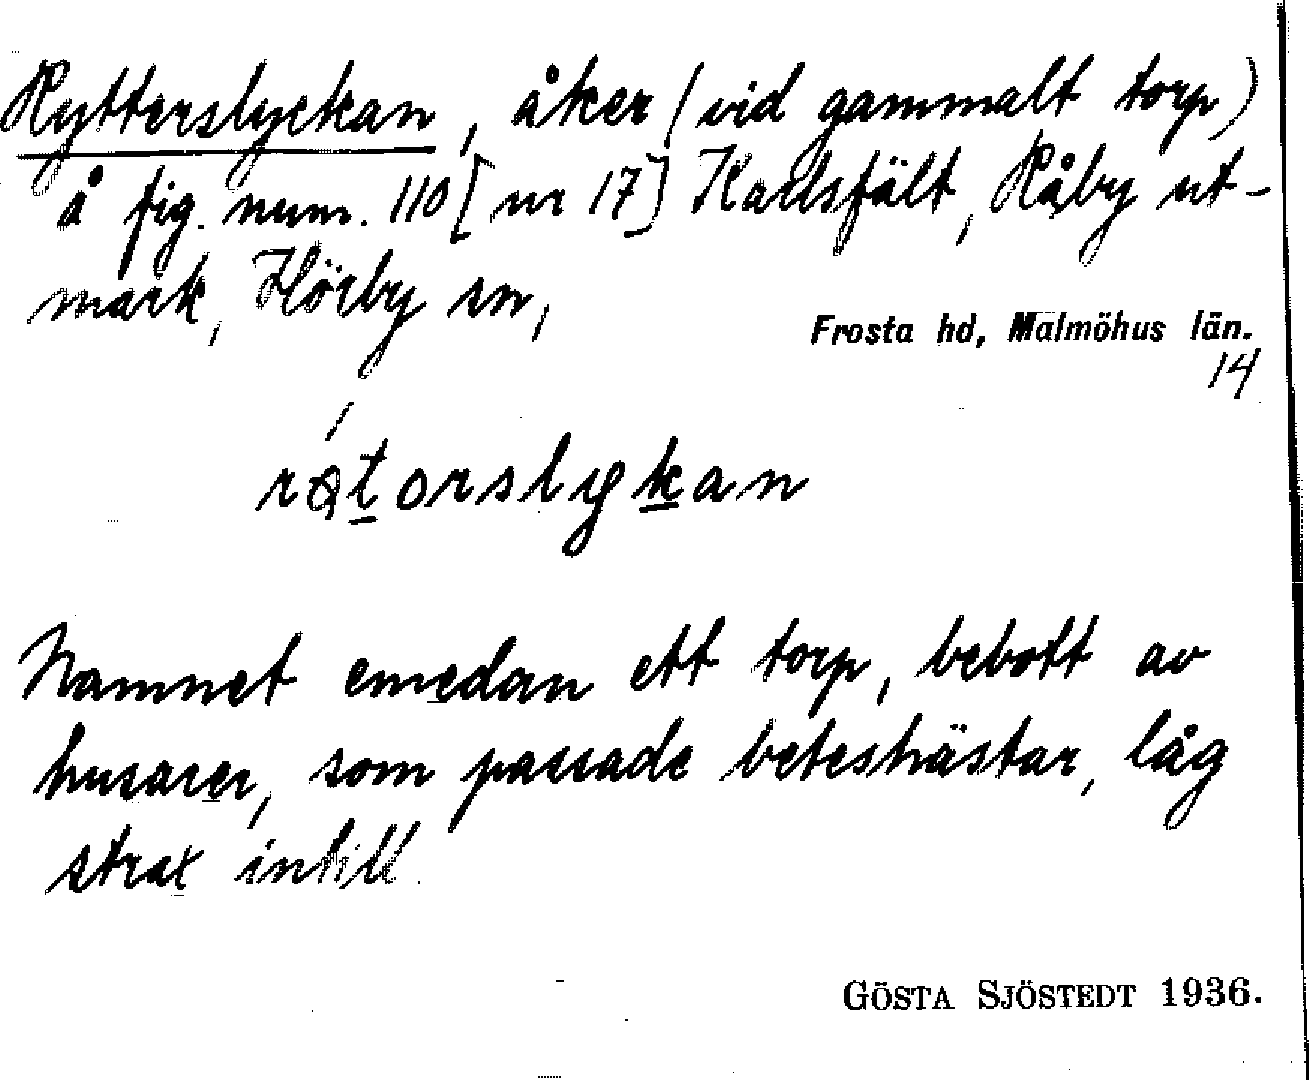 Rytterslyckan, åker (vid gammalt torp)
å fig. num. 110 [nr 17] Karlsfält, Råby ut-
mark, Hörby sn,
Frosta hd, Malmöhus län.
14
Namnet emedan ett torp, bebott av
husarer, som passade beteshästar, låg
strax intill.
GÖSTA SJÖSTEDT 1936.